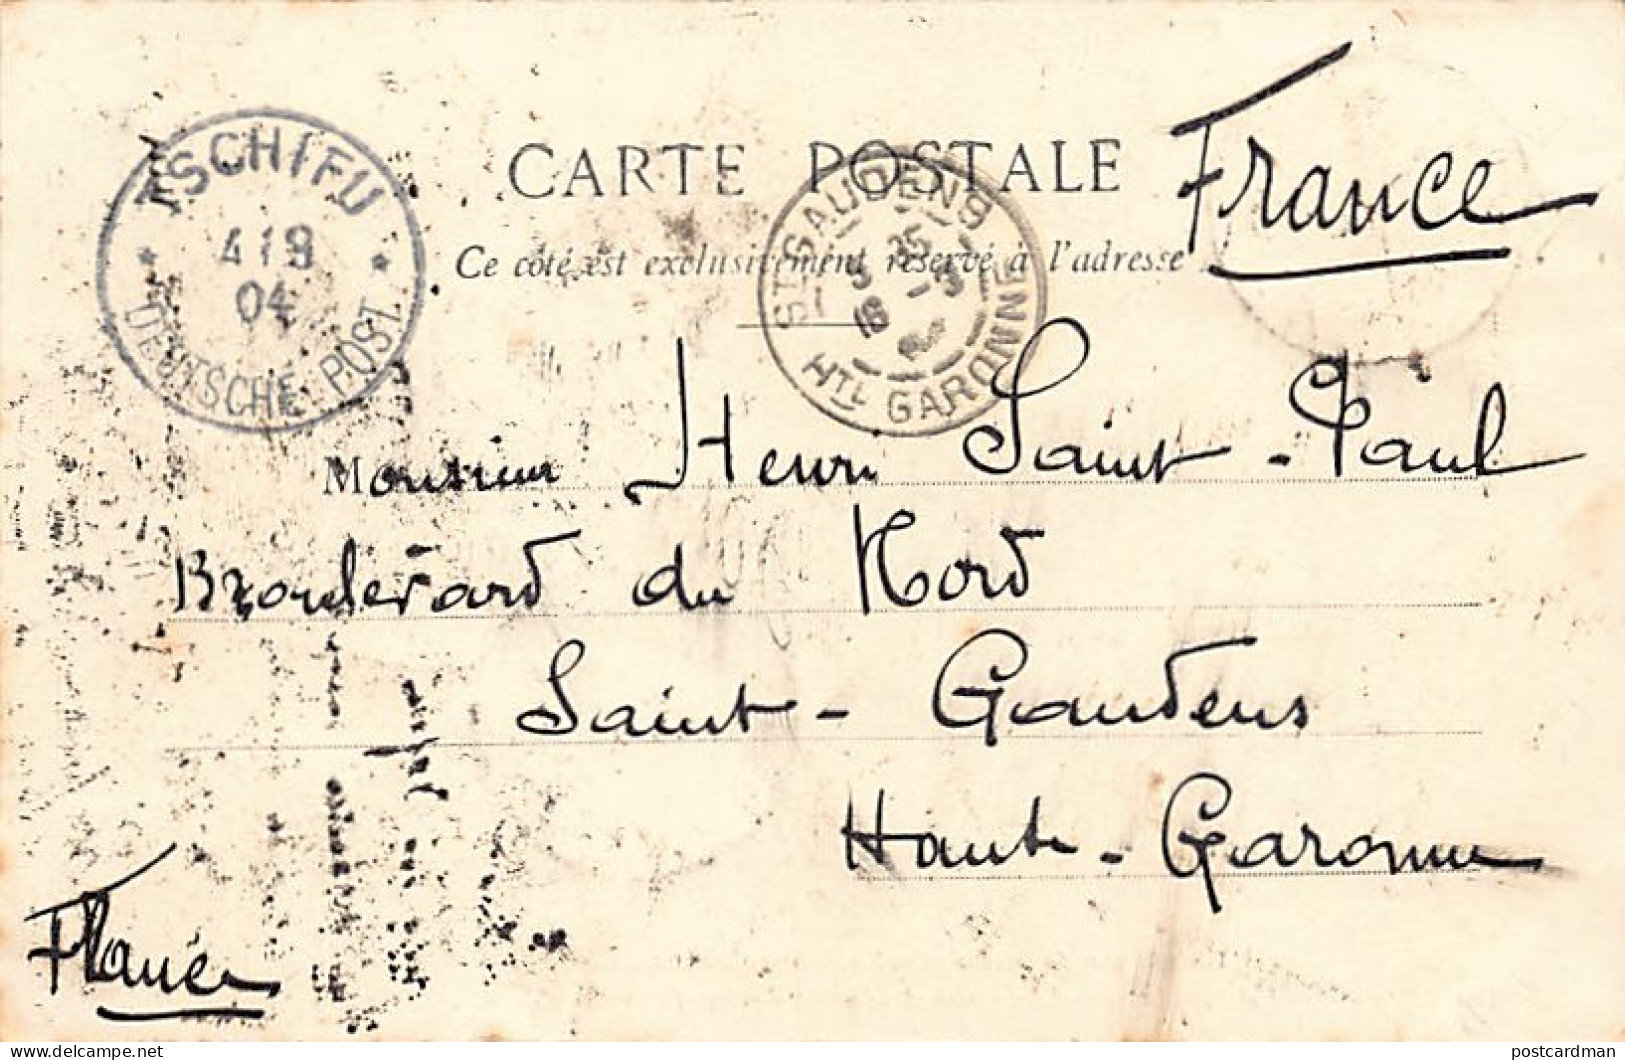 France
CARTE POSTALE
Ce côté est exclusivement réservé à l'adresse
TSCHIFU
4 1 9
04
DEUTSCHE POST
ST GAUDENS
HTE GARONNE
Monsieur Henri Saint-Paul
Boulevard du Nord
Saint-Gaudens
Haute-Garonne
France
postcardman